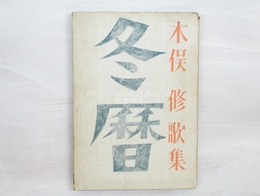 木俣修歌集
冬暦